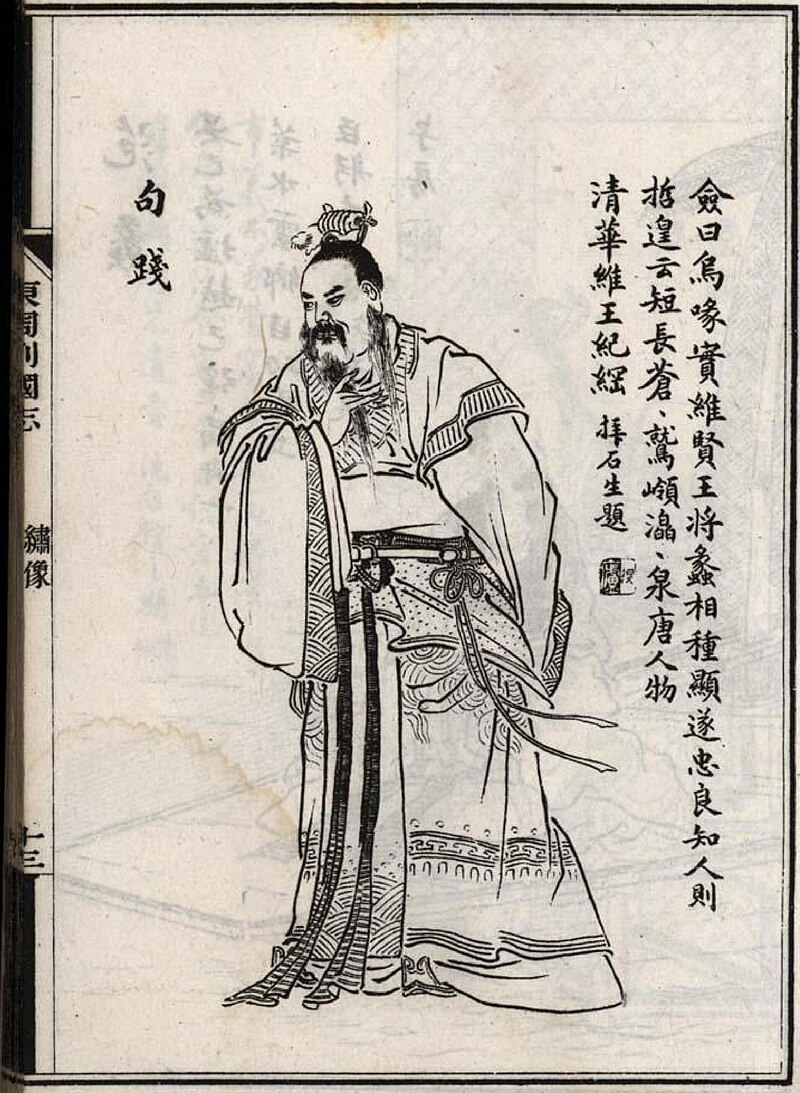 僉曰烏喙實維賢王將蠡相種顯遂忠良知人則
哲遑云短長蒼、鷲嶺潏、泉唐人物
清華維王紀綱 拜石生題
句踐
東周列國志
繡像
十三